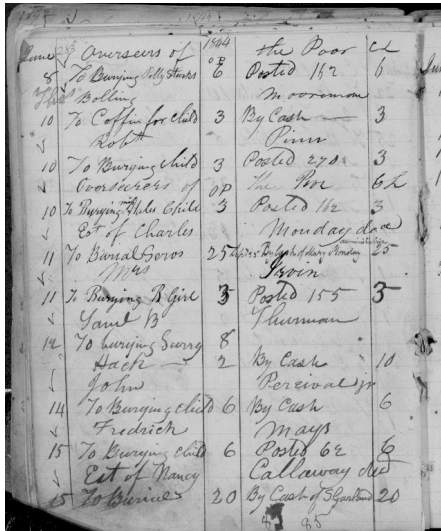 June Overseers of 1864 the Poor Cr
8 To Burying Polly 6 Posted 162 6
Thos Bolling Mooreman
10 To Coffin for Child 3 By Cash 3
Robt Pinn
10 To Burying Child 3 Posted 270 3
Overseerers of OP The Poor
10 To Burying Child 3 Posted 162 3
Est of Charles Monday decd
11 To Burial 25 By Cash of Mary Monday 25
Mrs Irvin
11 To Burying B Girl 5 Posted 155 5
Saml B Thurman
12 To burying 8
Hack 2 By Cash 10
John Percival jr
14 To Burying Child 6 By Cash 6
Fredrick Mays
15 To Burying Child 6 Posted 62 6
Est of Nancy Callaway decd
15 To Burial 20 By Cash of S Garland 20